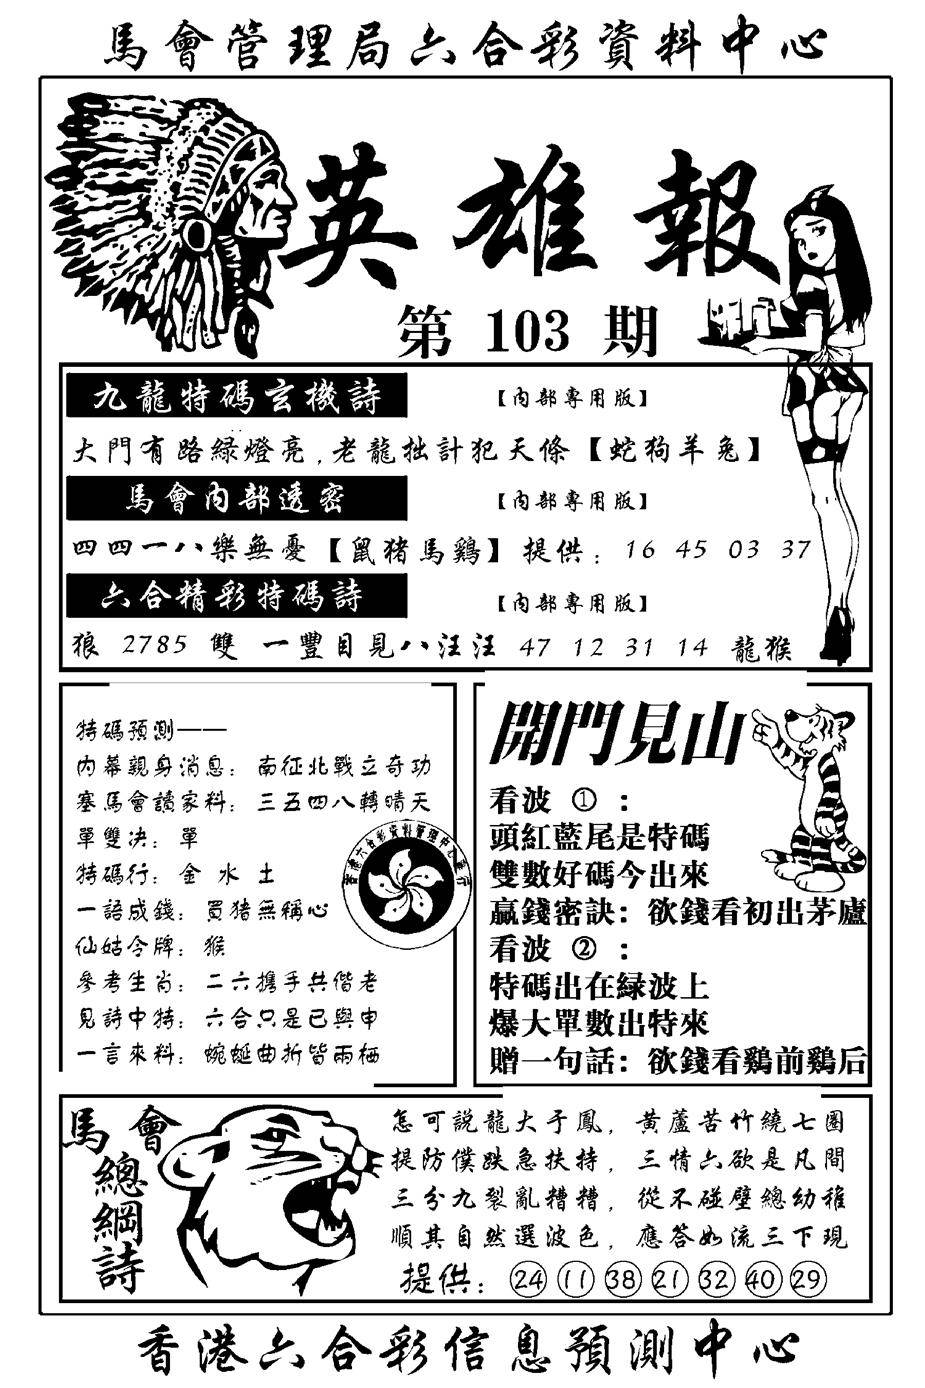 馬會管理局六合彩資料中心
英雄報
第 103 期
九龍特碼玄機詩 【內部專用版】
大門有路綠燈亮，老龍拙計犯天條【蛇狗羊兔】
馬會內部透密 【內部專用版】
四四一八樂無憂【鼠猪馬鷄】提供：16 45 03 37
六合精彩特碼詩 【內部專用版】
狼 2785 雙 一豐目見八汪汪 47 12 31 14 龍猴
特碼預測——
內幕親身消息：南征北戰立奇功
塞馬會讀家料：三五四八轉晴天
單雙决：單
特碼行：金 水 土
一語成錢：買猪無稱心
仙姑令牌：猴
參考生肖：二六携手共偕老
見詩中特：六合只是已與申
一言來料：蜿蜒曲折皆兩栖
開門見山
看波 ①：
頭紅藍尾是特碼
雙數好碼今出來
贏錢密訣：欲錢看初出茅廬
看波 ②：
特碼出在緑波上
爆大單數出特來
贈一句話：欲錢看鷄前鷄后
馬會
總綱詩
怎可説龍大于鳳，黄蘆苦竹繞七圈
提防僕跌急扶持，三情六欲是凡間
三分九裂亂糟糟，從不碰壁總幼稚
順其自然選波色，應答如流三下現
提供：24 11 38 21 32 40 29
香港六合彩信息預測中心